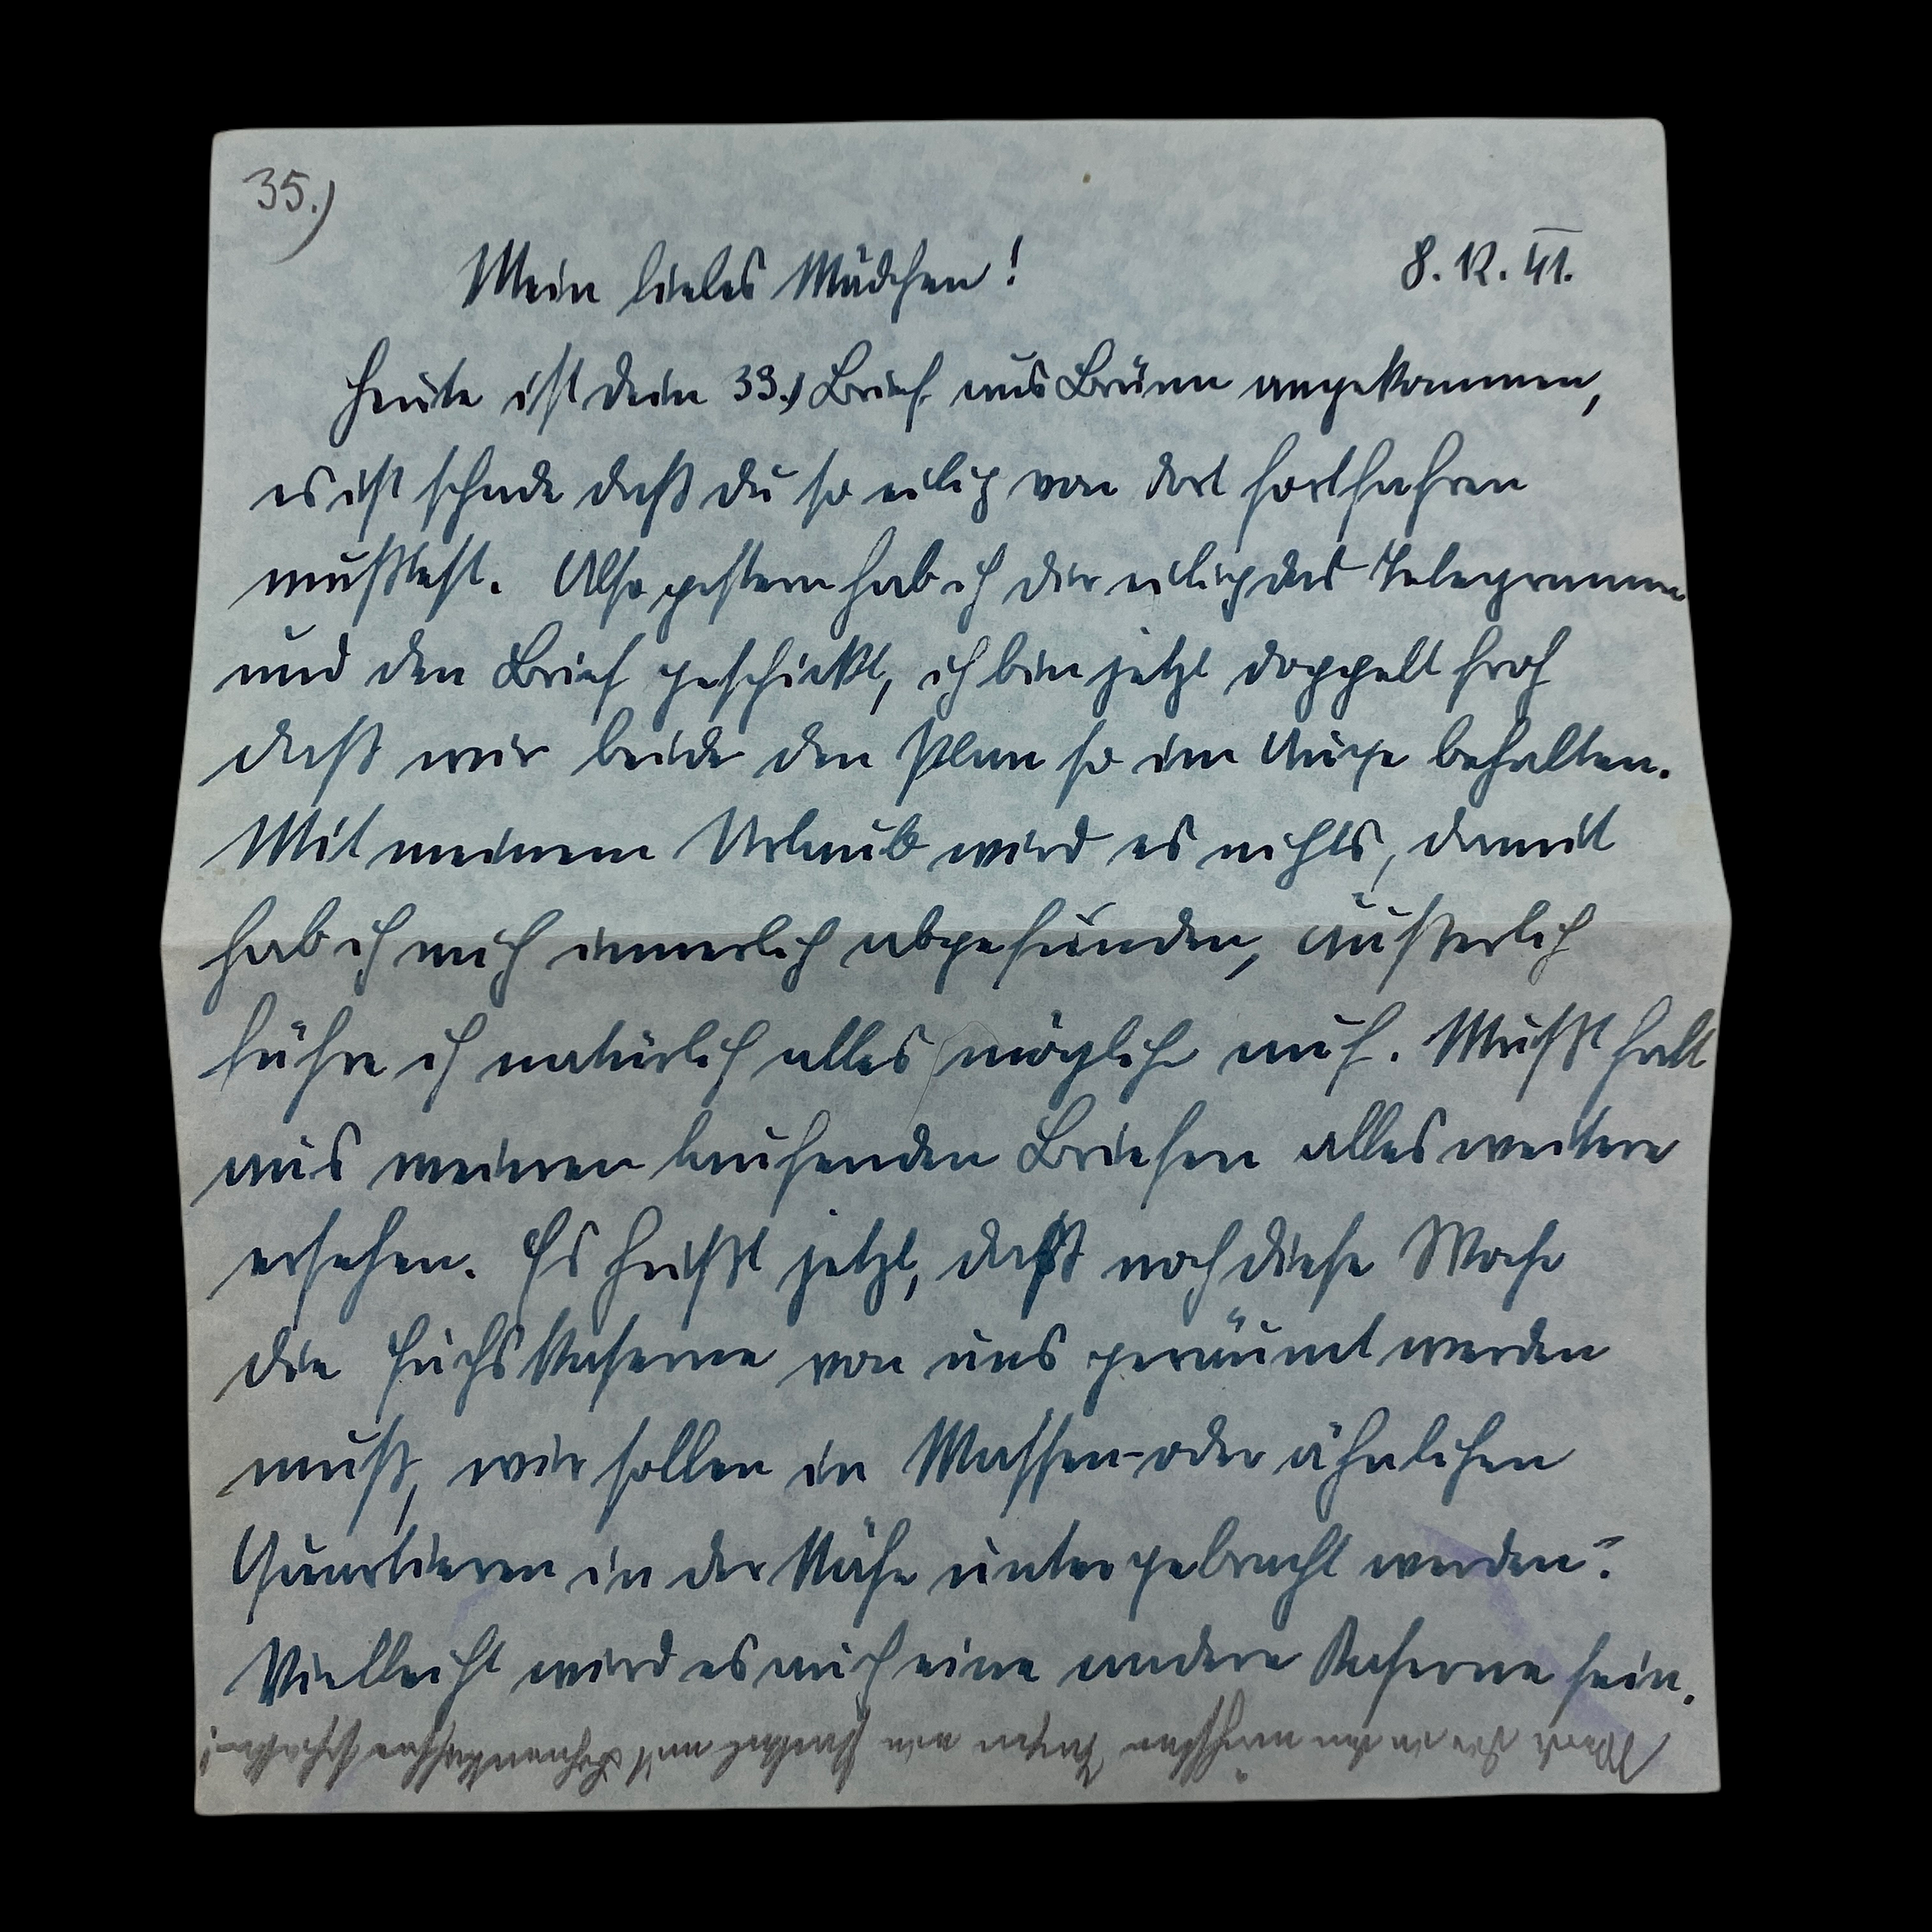 35.)
Mein liebes Mädchen! 8. 12. 41.
Heute ist dein 33.) Brief aus Brünn angekommen,
es ist schade daß du so eilig von dort fortfahren
mußtest. Also gestern hab ich dir eilig das Telegramm
und den Brief geschickt, ich bin jetzt doppelt froh
daß wir beide den Plan so im Auge behalten.
Mit meinem Urlaub wird es nichts, damit
hab ich mich innerlich abgefunden, äußerlich
führe ich natürlich alles mögliche auf. Mußt halt
aus meinen laufenden Briefen alles weitere
ersehen. Es heißt jetzt, daß noch diese Woche
die Fuchskaserne von uns geräumt werden
muß, wir sollen in Massen- oder ähnlichen
Quartieren in der Nähe untergebracht werden.
Vielleicht wird es auch eine andere Kaserne sein.
Werde dir in den nächsten Tagen ein Paket mit schicken!